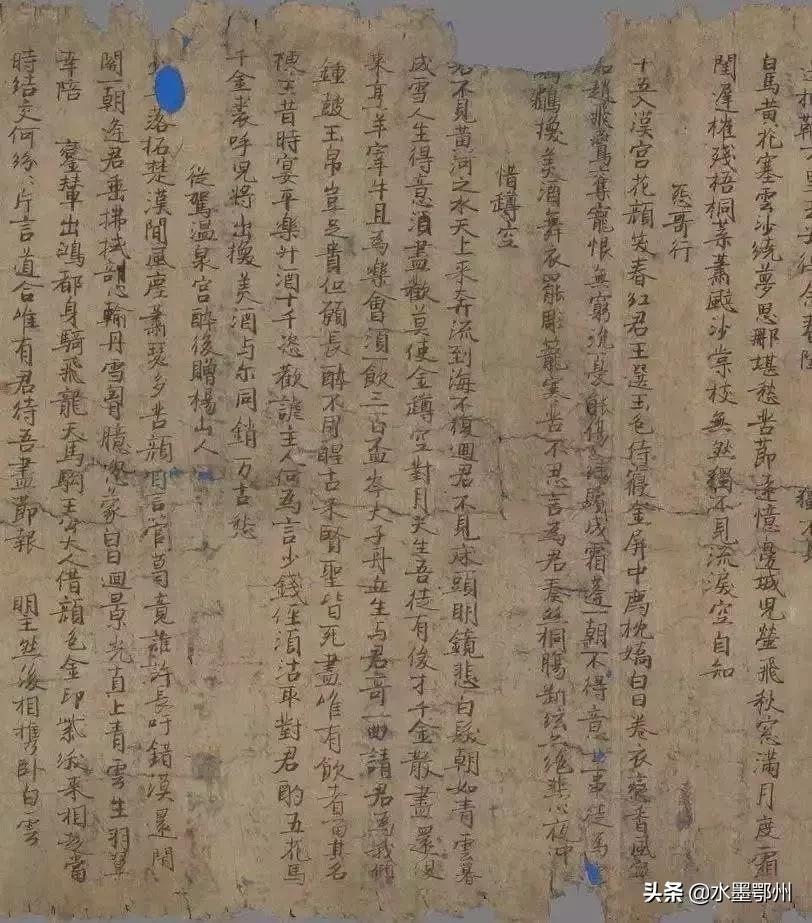 白馬黄花塞雲沙繞夢思那堪愁苦節遠憶邊城兒螢飛秋窓滿月度霜
閨遲摧残梧桐葉蕭颯沙棠枝無然獨不見流淚空自知
怨哥行
十五入漢宮花顔笑春紅君王選玉色侍寢金屏中薦枕嬌白日卷衣戀香風無
知趙飛鷰奪寵恨無窮沈憂能傷人緑鬢成霜蓬一朝不得意世事徒為空
鷫鸘換美酒舞衣罷彫籠寒苦不忍言為君奏絲桐腸断絃亦絶悲心夜冲
惜罇空
君不見黄河之水天上来奔流到海不復迴君不見床頭明鏡悲白髮朝如青雲暮
成雪人生得意須盡歡莫使金罇空對月天生吾徒有俊才千金散盡還復
来烹羊宰牛且為樂會須一飲三百盃岑夫子丹丘生与君哥一曲請君為我傾
鍾皷玉帛豈足貴但願長醉不用醒古来賢聖皆死盡唯有飲者留其名
陳王昔時宴平樂斗酒十千恣歡謔主人何為言少錢徑須沽取對君酌五花馬
千金裘呼兒将出換美酒与尔同銷万古愁
従駕温泉宮醉後贈楊山人
少年落拓楚漢間風塵蕭瑟多苦顔自言管葛竟誰許長吁錯漠還閇
關一朝逢君垂拂拭剖心輸丹雪胷臆忽蒙白日迴景光直上青雲生羽翼
幸陪 鸞輦出鴻都身騎飛龍天馬駒王公大人借顔色金印紫綬来相趁當
時結交何紛々片言道合唯有君待吾盡節報 明主然後相攜卧白雲
头条 @水墨鄂州